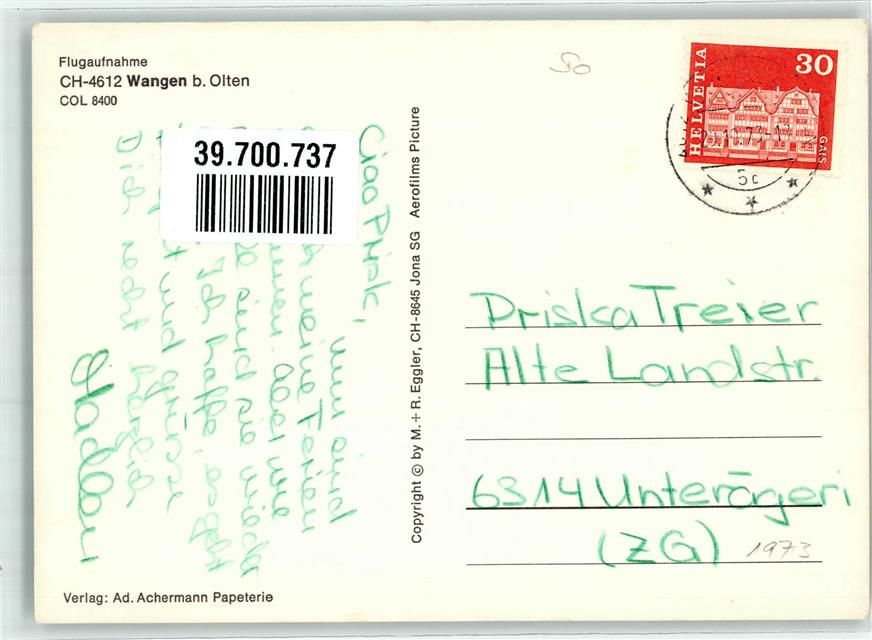 Flugaufnahme
CH-4612 Wangen b. Olten
COL 8400
50
HELVETIA
30
GAIS
5c
39.700.737
Ciao Prisk,
nun sind
meine Ferien
. Aber wie
sind sie wieder
Ich hoffe, es geht
und grüsse
Dich recht herzlich
Copyright © by M. + R. Eggler, CH-8645 Jona SG Aerofilms Picture
Priska Treier
Alte Landstr.
6314 Unterägeri
(ZG)
1973
Verlag: Ad. Achermann Papeterie